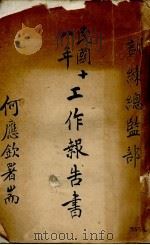 訓練總監部
民國
年
十工作報告書
何應欽署耑